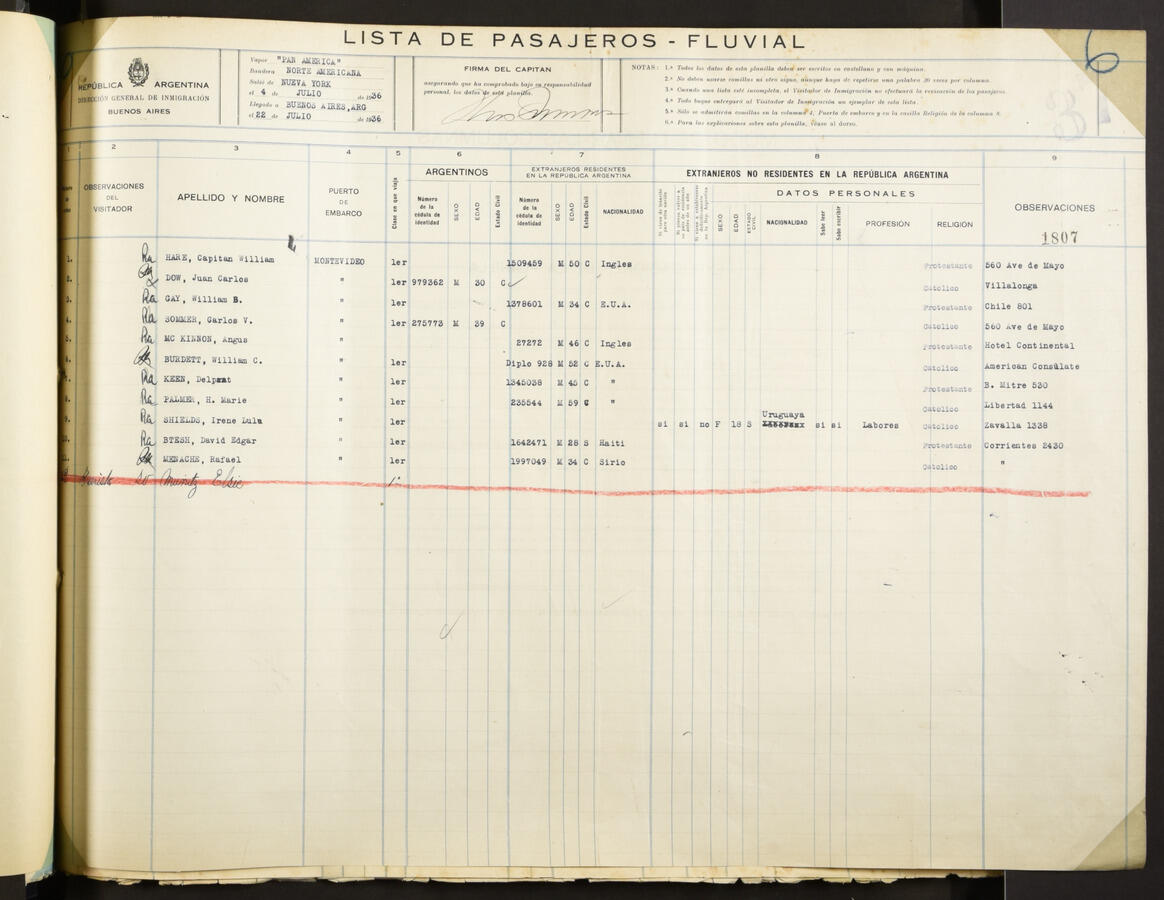 LISTA DE PASAJEROS - FLUVIAL
6
REPÚBLICA ARGENTINA
DIRECCIÓN GENERAL DE INMIGRACIÓN
BUENOS AIRES
Vapor "PAN AMERICA"
Bandera NORTE AMERICANA
Salió de NUEVA YORK
el 4 de JULIO de 1936
Llegado a BUENOS AIRES,ARG
el 22 de JULIO de 1936
FIRMA DEL CAPITAN
asegurando que ha comprobado bajo su responsabilidad
personal, los datos de esta planilla.
NOTAS: 1.ª Todos los datos de esta planilla deben ser escritos en castellano y con máquina.
2.ª No deben usarse comillas ni otro signo, aunque haya de repetirse una palabra 20 veces por columna.
3.ª Cuando una lista esté incompleta, el Visitador de Inmigración no efectuará la revisación de los pasajeros.
4.ª Todo buque entregará al Visitador de Inmigración un ejemplar de esta lista.
5.ª Sólo se admitirán comillas en la columna 4, Puerto de embarco y en la casilla Religión de la columna 8.
6.ª Para las explicaciones sobre esta planilla, véase al dorso.
1 2 3 4 5 6 7 8 9
OBSERVACIONES DEL VISITADOR
APELLIDO Y NOMBRE
PUERTO DE EMBARCO
Clase en que viaja
ARGENTINOS
Número de la cédula de identidad SEXO EDAD Estado Civil
EXTRANJEROS RESIDENTES EN LA REPÚBLICA ARGENTINA
Número de la cédula de identidad SEXO EDAD Estado Civil NACIONALIDAD
EXTRANJEROS NO RESIDENTES EN LA REPÚBLICA ARGENTINA
DATOS PERSONALES
SEXO EDAD ESTADO CIVIL NACIONALIDAD Sabe leer Sabe escribir PROFESIÓN RELIGIÓN
OBSERVACIONES
1807
1. Ra HARE, Capitan William MONTEVIDEO 1er 1509459 M 50 C Ingles Protestante 560 Ave de Mayo
2. DOW, Juan Carlos " 1er 979362 M 30 C Católico Villalonga
3. Ra GAY, William B. " 1er 1378601 M 34 C E.U.A. Protestante Chile 801
4. Ra SOMMER, Carlos V. " 1er 275773 M 39 C Católico 560 Ave de Mayo
5. Ra MC KINNON, Angus " 27272 M 46 C Ingles Protestante Hotel Continental
6. BURDETT, William C. " 1er Diplo 928 M 52 C E.U.A. Católico American Consulate
7. Ra KEEN, Delprat " 1er 1345038 M 45 C " Protestante B. Mitre 530
8. Ra PALMER, H. Marie " 1er 235544 M 59 C " Católico Libertad 1144
9. Ra SHIELDS, Irene Lulu " 1er si si no F 18 S Uruguaya si si Labores Católico Zavalla 1338
10. Ra BTESH, David Edgar " 1er 1642471 M 28 S Haiti Protestante Corrientes 2430
11. MENACHE, Rafael " 1er 1997049 M 34 C Sirio Católico "
Elsie 1ª